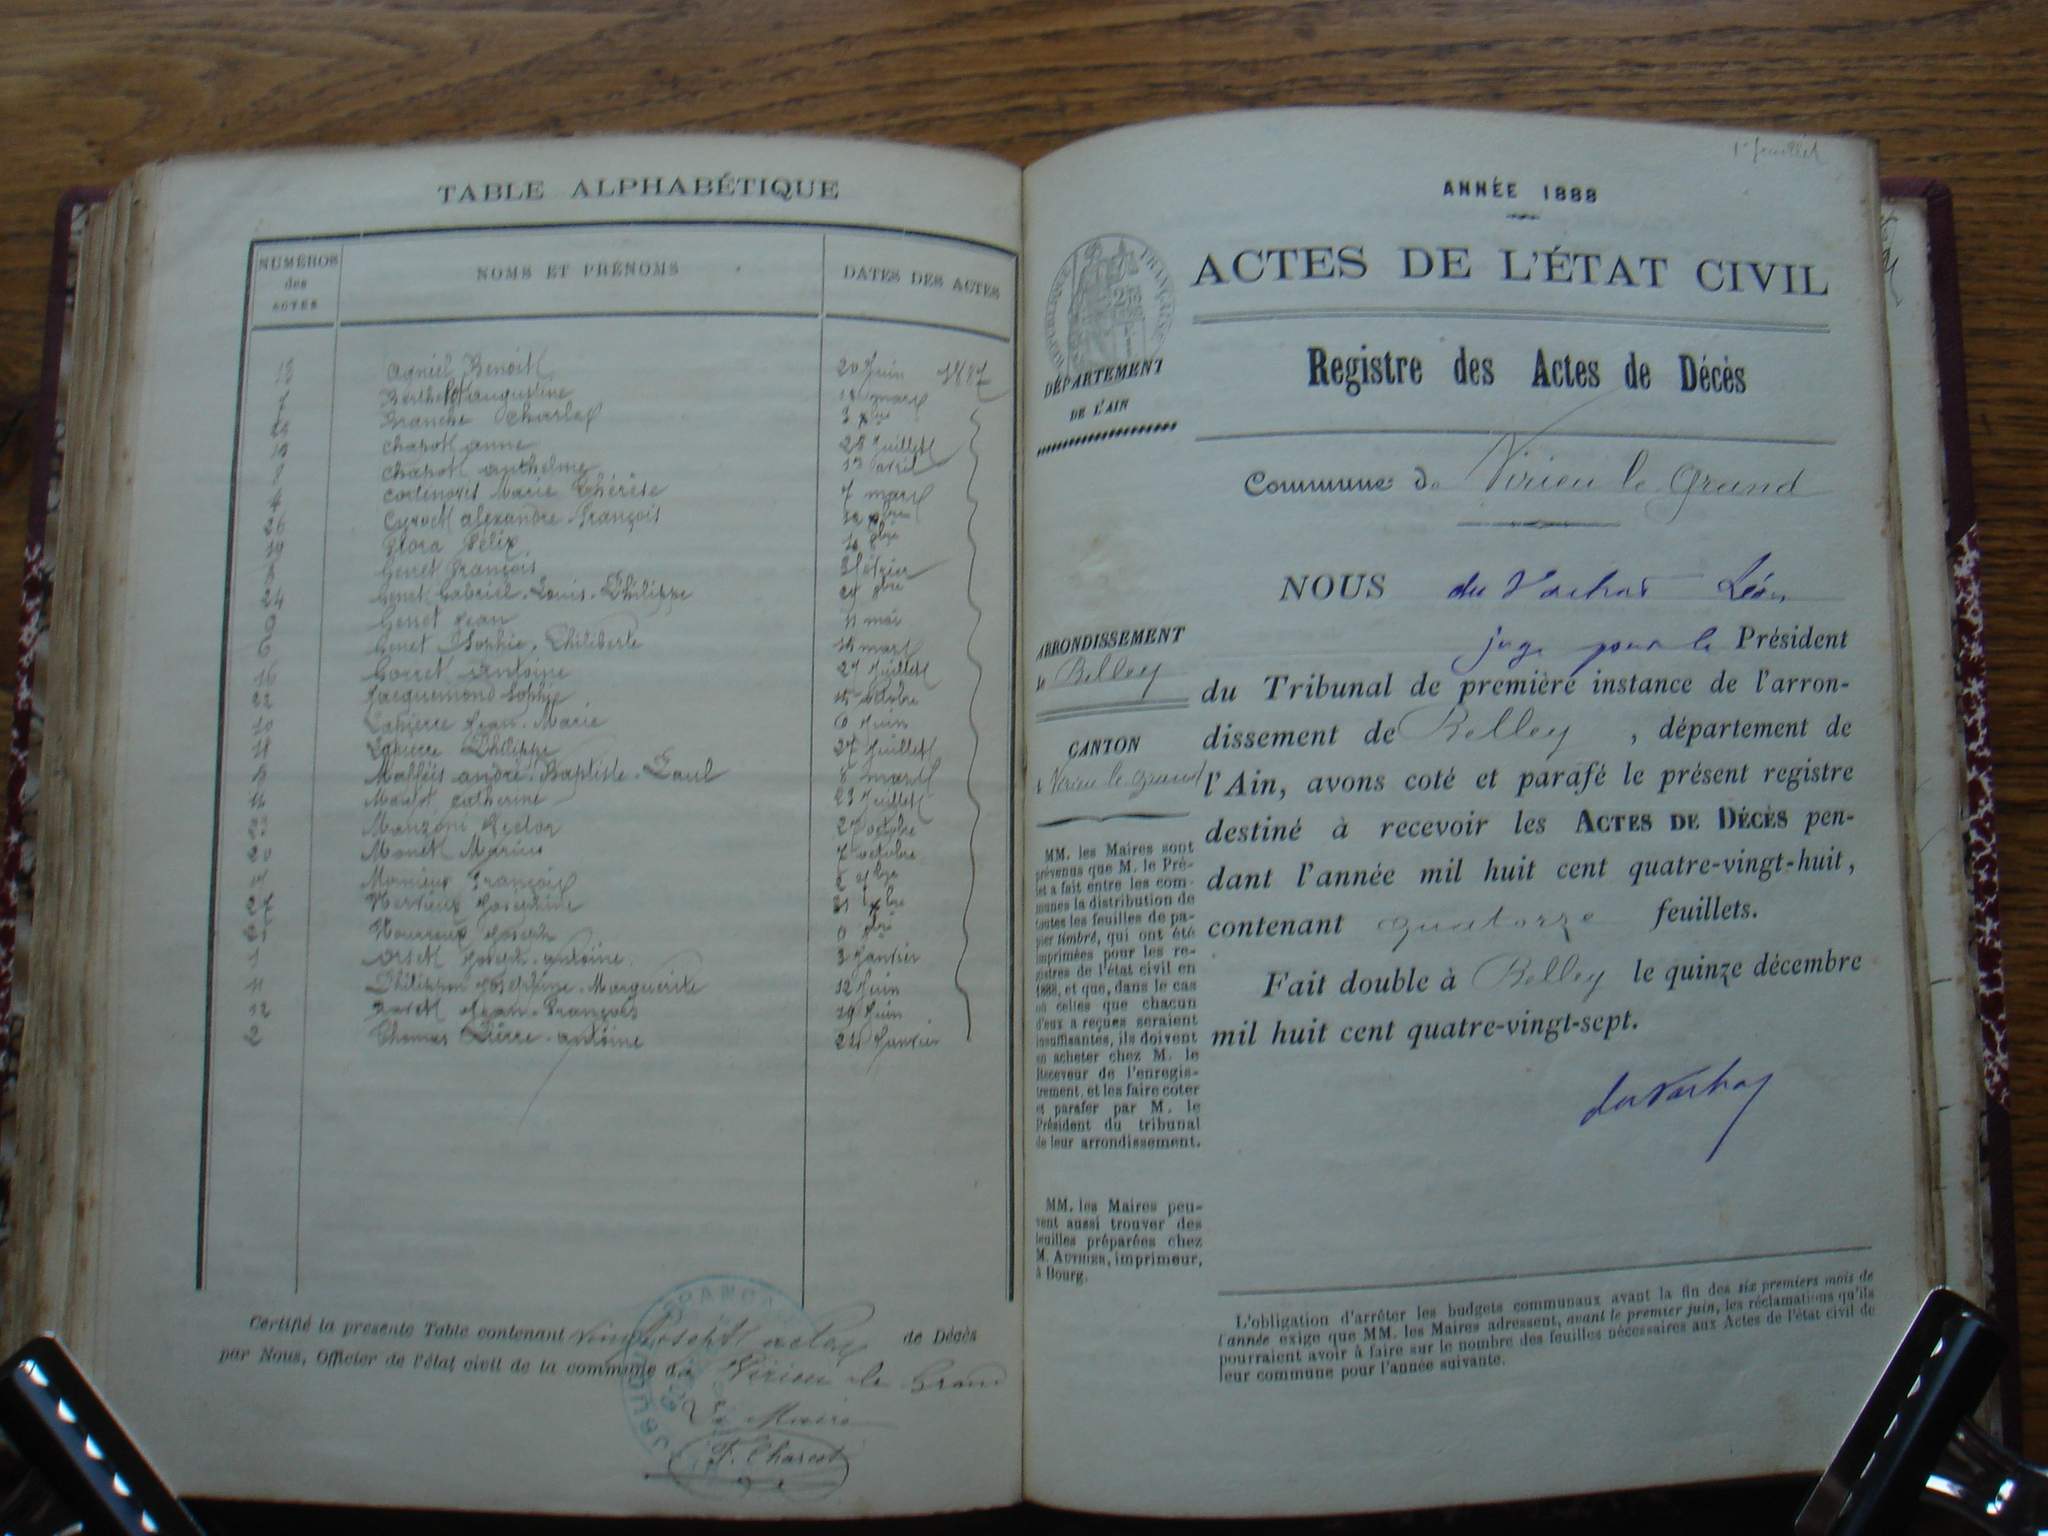 TABLE ALPHABÉTIQUE
NUMÉROS des ACTES
NOMS ET PRÉNOMS
DATES DES ACTES
Agniel Benoit 20 Juin 1887
Berthelot Augustine mars
Branche Charles 3 xbre
Chapot Anne 28 Juillet
Chapot Anthelme 13 avril
Marie Thérèse 7 mars
Alexandre François xbre
Flora Félix
Genet François février
24 Genet Gabriel-Louis-Philippe
Genet Jean 11 mai
6 Genet Sophie Philiberte mars
16 Goret Antoine 27 Juillet
22 Jacquemond Sophie octobre
10 Lapierre Jean-Marie 6 Juin
Lapierre Philippe 27 Juillet
André-Baptiste-Paul 8 mars
Catherine 23 Juillet
Manzoni 27 octobre
20 Monet Marius 7 octobre
François
Joséphine
Joseph
Joseph Antoine 3 Janvier
11 Philippon Joséphine-Marguerite 12 Juin
12 Jean-François 19 Juin
2 Thomas Pierre-Antoine 22 Janvier
Certifié la présente Table contenant vingt sept actes de Décès
par Nous, Officier de l'état civil de la commune de Virieu le Grand
Le Maire
F. Charcot
1er feuillet
ANNÉE 1888
ACTES DE L'ÉTAT CIVIL
RÉPUBLIQUE FRANÇAISE
DÉPARTEMENT
DE L'AIN
Registre des Actes de Décès
Commune de Virieu le Grand
ARRONDISSEMENT
de Belley
CANTON
de Virieu le Grand
MM. les Maires sont
prévenus que M. le Pré-
fet a fait entre les com-
munes la distribution de
toutes les feuilles de pa-
pier timbré, qui ont été
imprimées pour les re-
gistres de l'état civil en
1888, et que, dans le cas
où celles que chacun
d'eux a reçues seraient
insuffisantes, ils doivent
en acheter chez M. le
Receveur de l'enregis-
trement, et les faire coter
et parafer par M. le
Président du tribunal
de leur arrondissement.
MM. les Maires peu-
vent aussi trouver des
feuilles préparées chez
M. AUTHIER, imprimeur,
à Bourg.
NOUS du Vachat Léon
juge pour le Président
du Tribunal de première instance de l'arron-
dissement de Belley, département de
l'Ain, avons coté et parafé le présent registre
destiné à recevoir les ACTES DE DÉCÈS pen-
dant l'année mil huit cent quatre-vingt-huit,
contenant quatorze feuillets.
Fait double à Belley le quinze décembre
mil huit cent quatre-vingt-sept.
du Vachat
L'obligation d'arrêter les budgets communaux avant la fin des six premiers mois de
l'année exige que MM. les Maires adressent, avant le premier juin, les réclamations qu'ils
pourraient avoir à faire sur le nombre des feuilles nécessaires aux Actes de l'état civil de
leur commune pour l'année suivante.